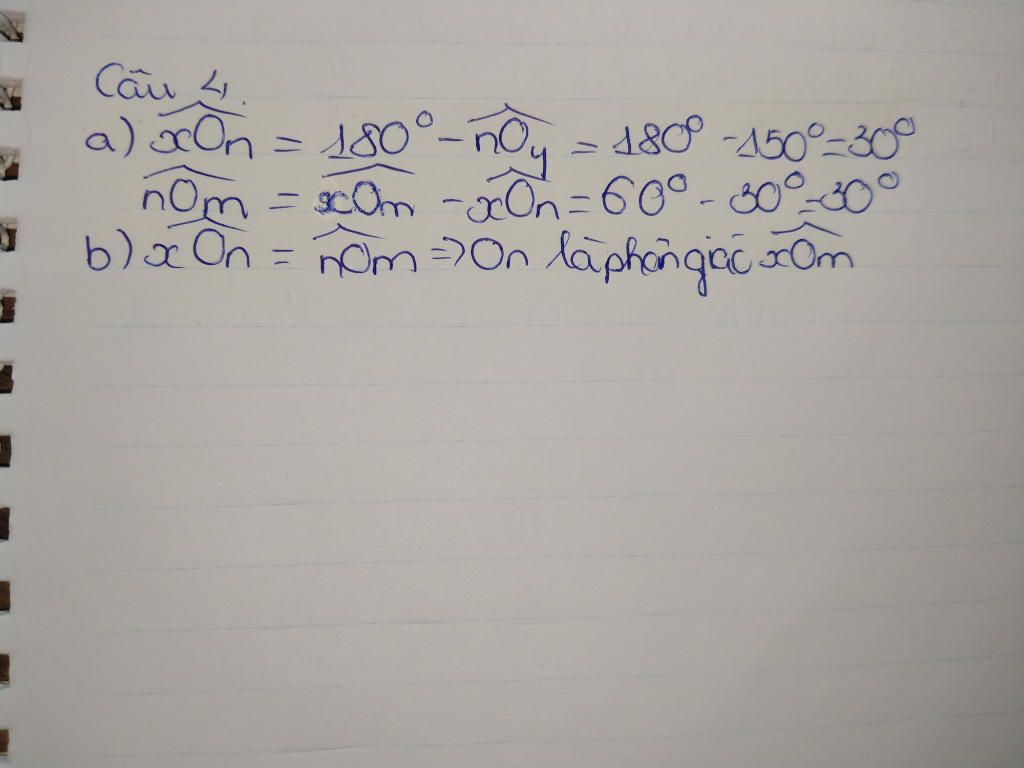 Câu 4.
a) $\widehat{xOn}$ = 180° - $\widehat{nOy}$ = 180° - 150° = 30°
$\widehat{nOm}$ = $\widehat{xOm}$ - $\widehat{xOn}$ = 60° - 30° = 30°
b) $\widehat{xOn}$ = $\widehat{nOm}$ => On là phân giác $\widehat{xOm}$